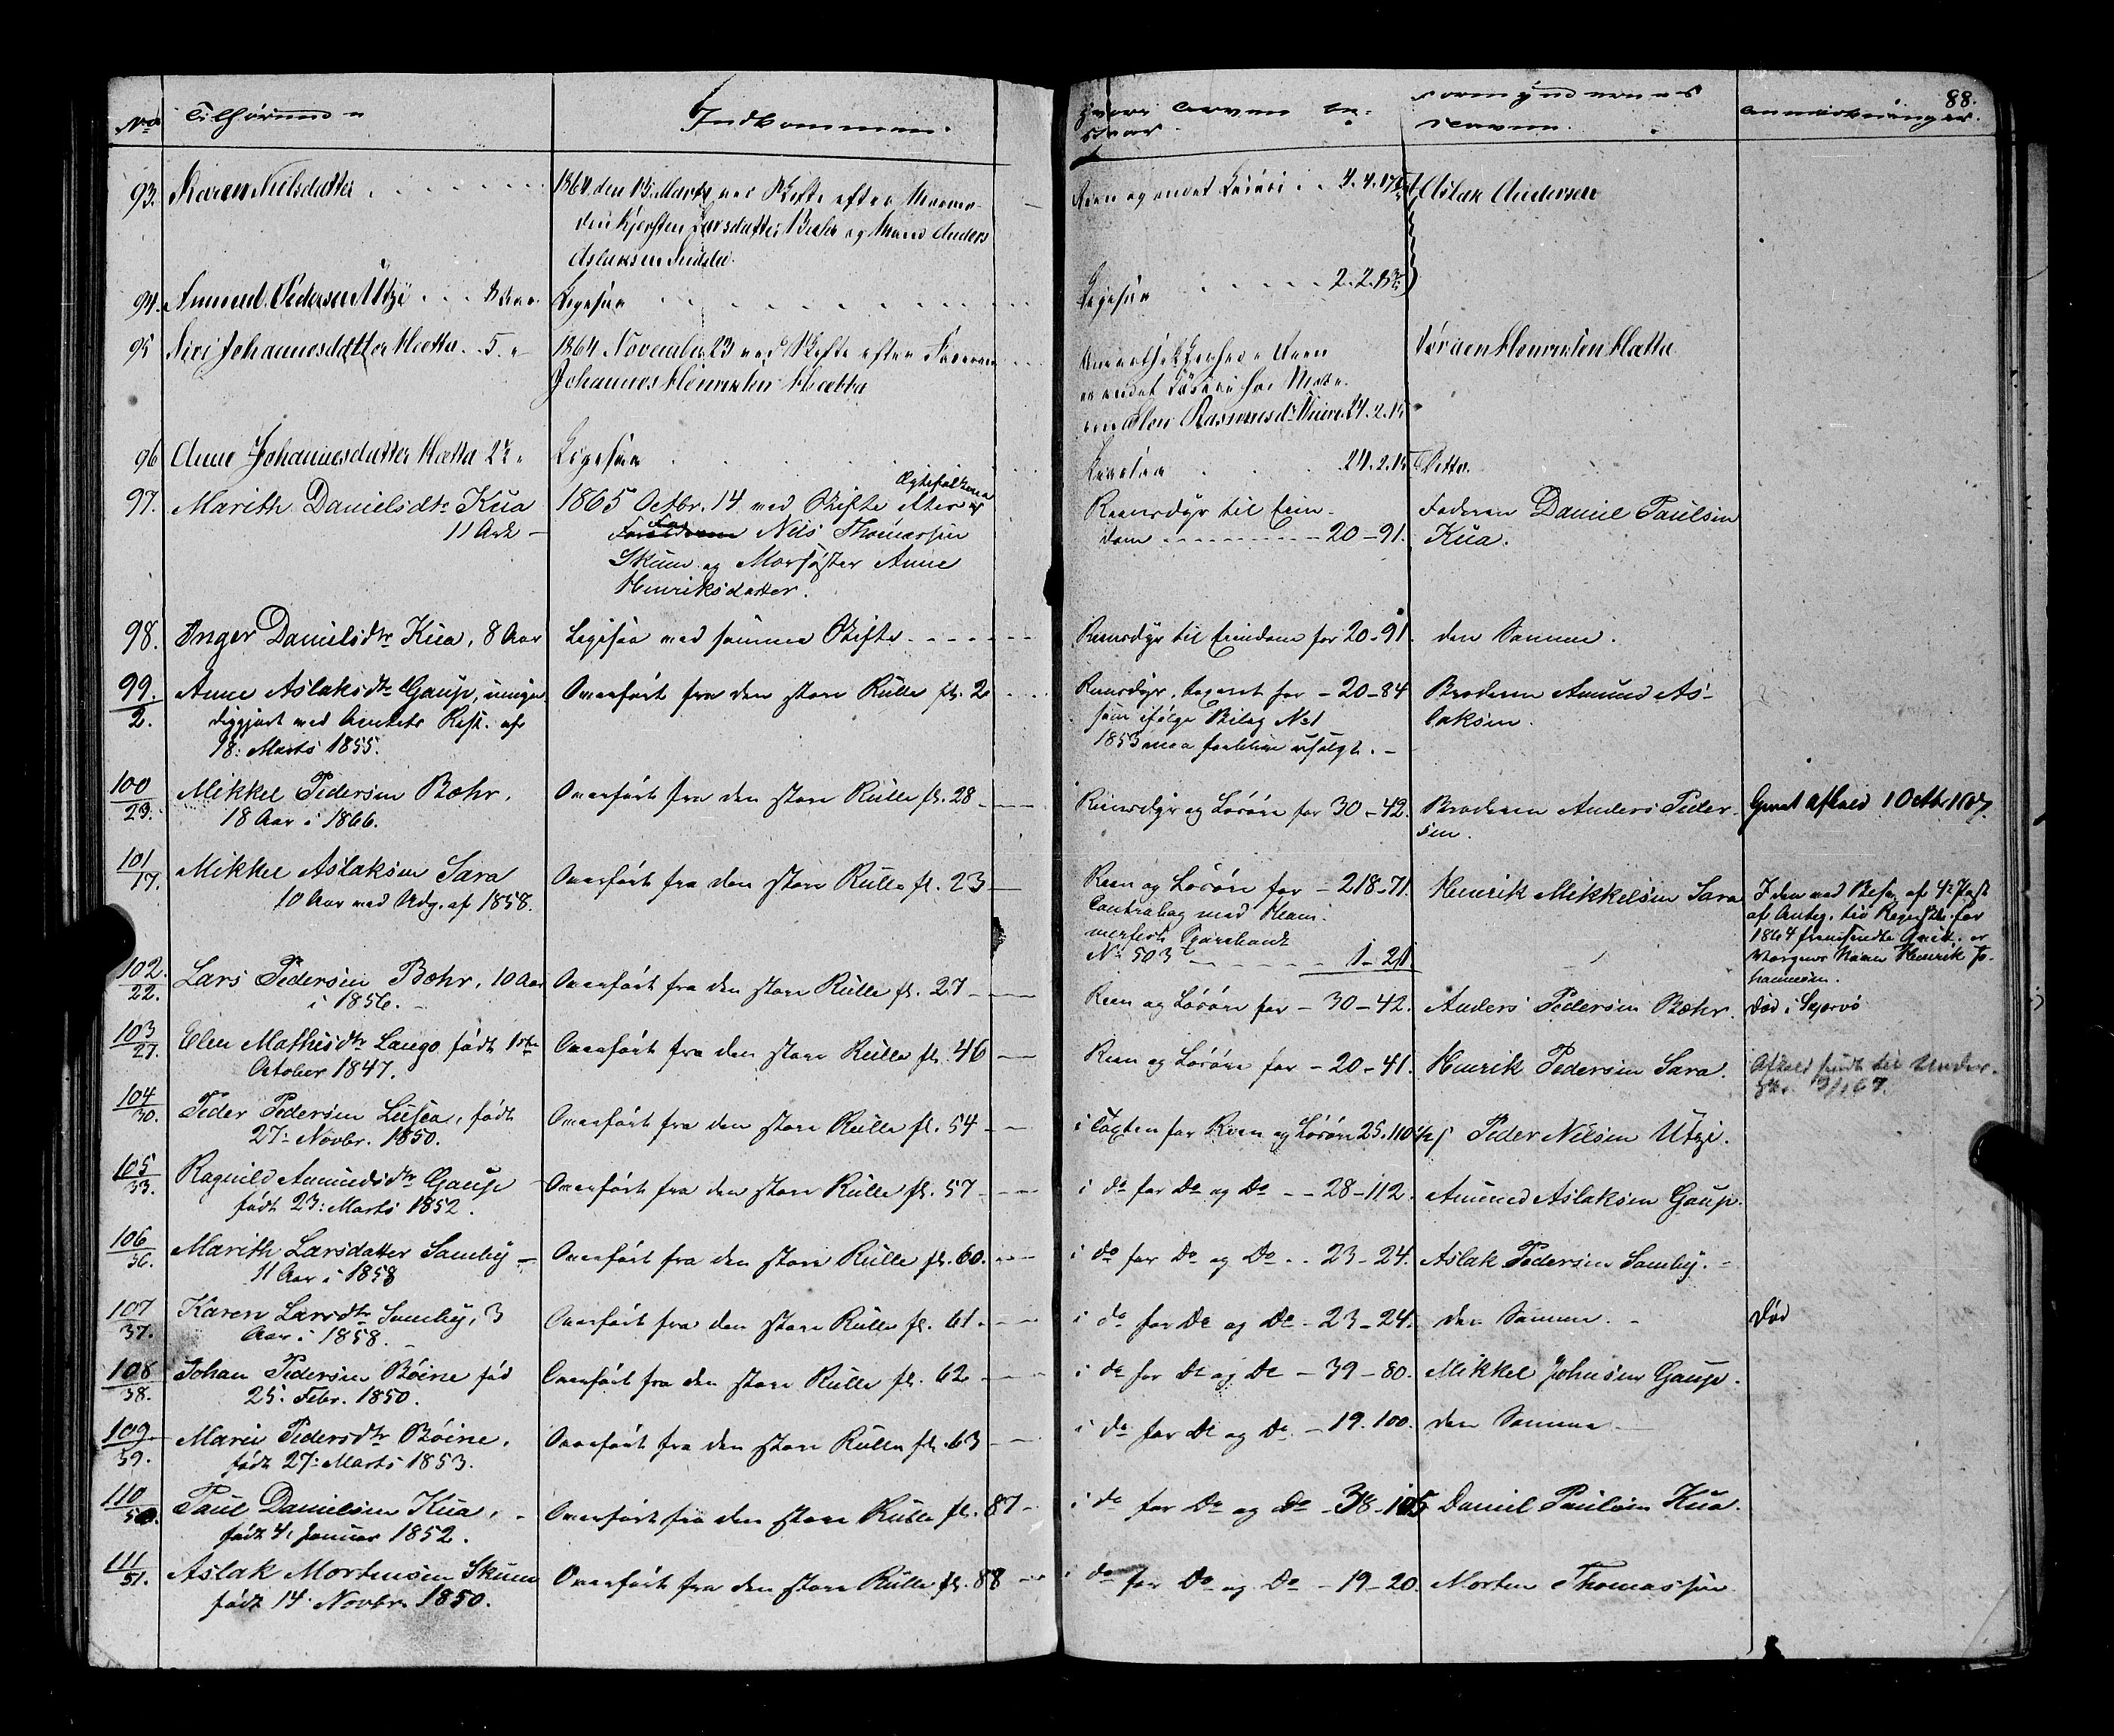 88.
No Tilhørende
Indkommen.
Hvori Arven be-
staar
Formyndernes
Navne.
Anmærkninger.
93. Karen Nilsdatter
1864 den 15 Marts ved Skifte efter
Kjersten Larsdatter og Mand Anders
Aslaksen
Reen og andet Løsøre
Aslak Andersen
94. Amund Pedersen Utzi 8 Aar
Ligesaa
Ligesaa 2. 2.
95 Siri Johannesdatter Hætta. 5. "
1864 November 23 ved Skifte efter Faderen
Johannes Henriksen Hætta
og andet Løsøre hos Mode-
ren Elen Rasmusdr 24. 2. 15
Jørgen Henriksen Hætta
96 Anne Johannesdatter Hætta 2½ "
Ligesaa
Ligesaa 24. 2. 15
Ditto.
97. Marith Danielsdtr Kua
11 Aar -
1865 Octbr. 14 ved Skifte efter Ægtefolkene
Forældrene Far Nils Thomassen
Skum og Morsøster Anne
Henriksdatter.
Reensdyr til Eien-
dom - 20 - 91.
Faderen Daniel Paulsen
Kua.
98. Inger Danielsdtr Kua, 8 Aar
Ligesaa ved samme Skifte
Reensdyr til Eiendom for 20 - 91.
den Samme.
99.
2. Anne Aslaksdtr Gaup, umyn-
diggjort ved Amtets Resl. af
18: Marts 1855.
Overført fra den store Rulle fl. 2
Rensdyr, taxeret for - 20 - 84
som ifølge Bilag No 1
1853 maa forblive usolgt. -
Broderen Amund As-
laksen.
100
23. Mikkel Pedersen Bæhr.
18 Aar i 1866.
Overført fra den store Rulle fl. 28
Reensdyr og Løsøre for 30 - 42.
Broderen Anders Peder-
sen.
101
17. Mikkel Aslaksen Sara
10 Aar ved Udg. af 1858.
Overført fra den store Rulle fl. 23
Reen og Løsøre for - 218 - 71.
Contrabog med Ham-
merfests Sparebank
No 503 - 1 - 21
Henrik Mikkelsen Sara
I den ved Besv. af 4de Post
af Anteg. til Regnsk. for
1864 fremsendte Qvitt. er
Værgens Navn Henrik Jo-
hannesen.
102.
22. Lars Pedersen Bæhr, 10 Aar
i 1856. -
Overført fra den store Rulle fl. 27
Reen og Løsøre for - 30 - 42.
Anders Pedersen Bæhr.
Død i Skjervø
103
27. Elen Mathisdtr Lango, født 1ste
October 1847.
Overført fra den store Rulle fl. 46
Reen og Løsøre for - 20 - 41.
Henrik Pedersen Sara.
Afkald sendt til Under-
104
30. Peder Pedersen, født
27: Novbr. 1850.
Overført fra den store Rulle fl. 54
i Taxten for Reen og Løsøre 25. 110½
Peder Nilsen Utzi.
105
33. Ragnild Amundsdtr Gaup
født 23: Marts 1852.
Overført fra den store Rulle fl. 57
i do for Do og Do - 28 - 112.
Amund Aslaksen Gaup.
106
36. Marith Larsdatter Somby
11 Aar i 1858
Overført fra den store Rulle fl. 60.
i do for Do og Do - 23 - 24.
Aslak Pedersen Somby.
107
37. Karen Larsdtr Somby, 3
Aar i 1858. -
Overført fra den store Rulle fl. 61.
i do for Do og Do - 23 - 24.
den Samme. -
Død
108
38. Johan Pedersen Bøine fød
25: Febr. 1850.
Overført fra den store Rulle fl. 62
i do for Do og Do - 39 - 80.
Mikkel Johnsen Gaup.
109
39. Marie Pedersdtr Bøine,
født 27: Marts 1853.
Overført fra den store Rulle fl. 63
i do for Do og Do - 19. 100.
den Samme
110
50. Paul Danielsen Kua,
født 4. Januar 1852.
Overført fra den store Rulle fl. 87
i do for Do og Do - 38 - 105
Daniel Paulsen Kua.
111
51. Aslak Mortensen Skum
født 14 Novbr. 1850.
Overført fra den store Rulle fl. 88
i do for Do og Do - 19 - 20.
Morten Thomassen